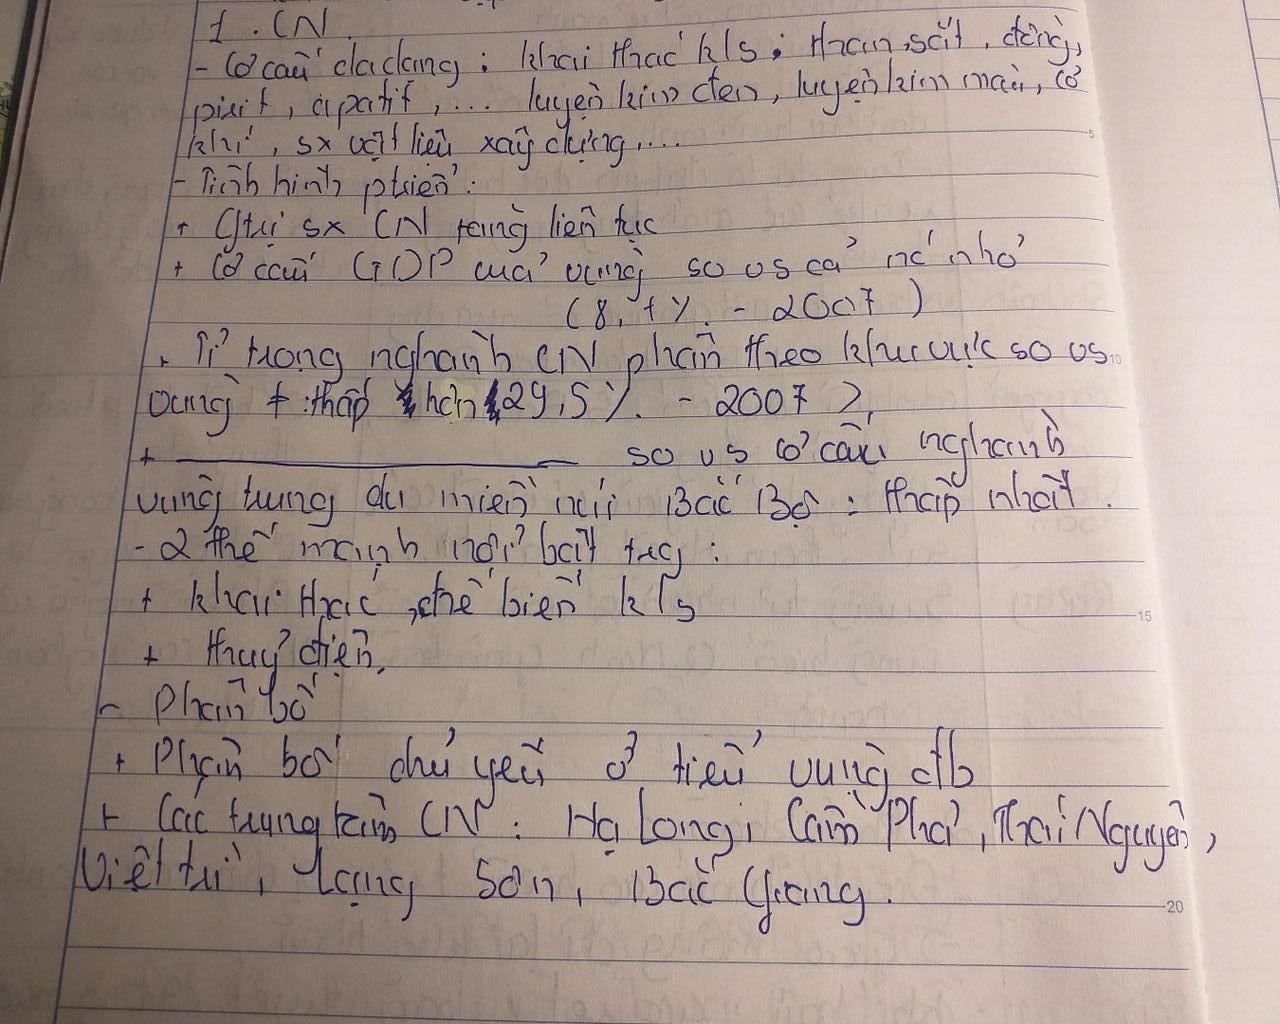 1. CN.
- Cơ cấu đa dạng : khai thác kls : than, sắt, đồng,
pirit, apatit, ... luyện kim đen, luyện kim màu, cơ
khí, sx vật liệu xây dựng....
- Tình hình ptriển :
+ Gtrị sx CN tăng liên tục
+ Cơ cấu GDP của vùng so vs cả nc nhỏ
(8,1%. - 2007)
+ Tỉ trọng nghành CN phân theo khu vực so vs
vùng # : thấp hơn (29,5%. - 2007).
+ ———————— so vs cơ cấu nghành
vùng trung du miền núi Bắc Bộ : thấp nhất.
- 2 thế mạnh nổi bật trg :
+ khai thác, chế biến kls
+ thuỷ điện.
- Phân bố
+ Phân bố chủ yếu ở tiểu vùng đb
+ Các trung tâm CN : Hạ Long, Cẩm Phả, Thái Nguyên,
Việt trì, Lạng Sơn, Bắc Giang.
5
10
15
20